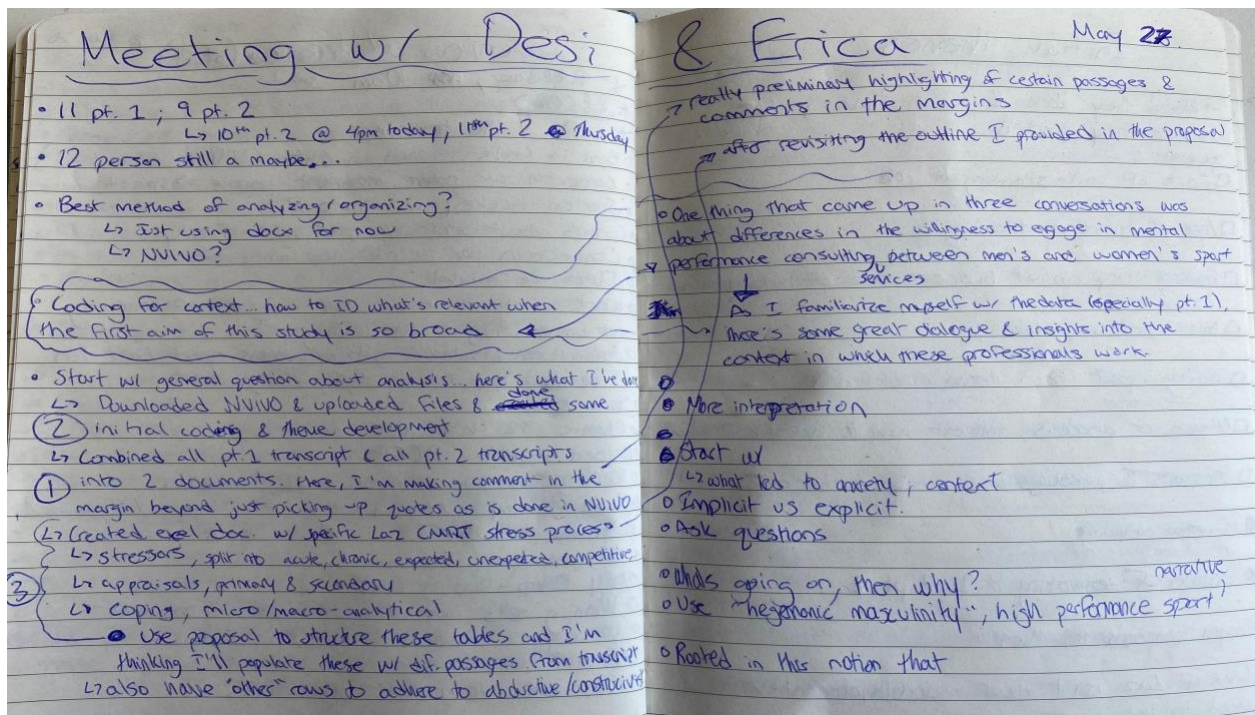 Meeting w/ Desi & Erica
May 28.
• 11 pt. 1 ; 9 pt. 2
↳ 10th pt. 2 @ 4pm today, 11th pt. 2 @ Thursday
• 12 person still a maybe...
• Best method of analyzing/organizing?
↳ Just using docx for now
↳ NVIVO?
Coding for context... how to ID what's relevant when
the first aim of this study is so broad
• Start w/ general question about analysis... here's what I've done
↳ Downloaded NVIVO & uploaded files & done some
② initial coding & theme development
↳ Combined all pt. 1 transcript & all pt. 2 transcripts
① into 2 documents. Here, I'm making comment in the
margin beyond just picking up quotes as is done in NVIVO
↳ Created exel doc. w/ specific Laz CMRT stress process
↳ stressors, split into acute, chronic, expected, unexpected, competitive
③ ↳ appraisals, primary & secondary
↳ coping, micro/macro-analytical
• Use proposal to structure these tables and I'm
thinking I'll populate these w/ dif. passages from transcript
↳ also have "other" rows to adhere to abductive/constructivist
→ really preliminary highlighting of certain passages &
comments in the margins
→ after revisiting the outline I provided in the proposal
• One thing that came up in three conversations was
about differences in the willingness to egage in mental
performance consulting services between men's and women's sport
As I familiarize myself w/ the data (especially pt. 1),
there's some great dialogue & insights into the
context in which these professionals work.
• More interpretation
• Start w/
↳ what led to anxiety, context
• Implicit vs explicit.
• Ask questions
• Whats going on, then why?
• Use "hegemonic masculinity", high performance sport narrative
• Rooted in this notion that